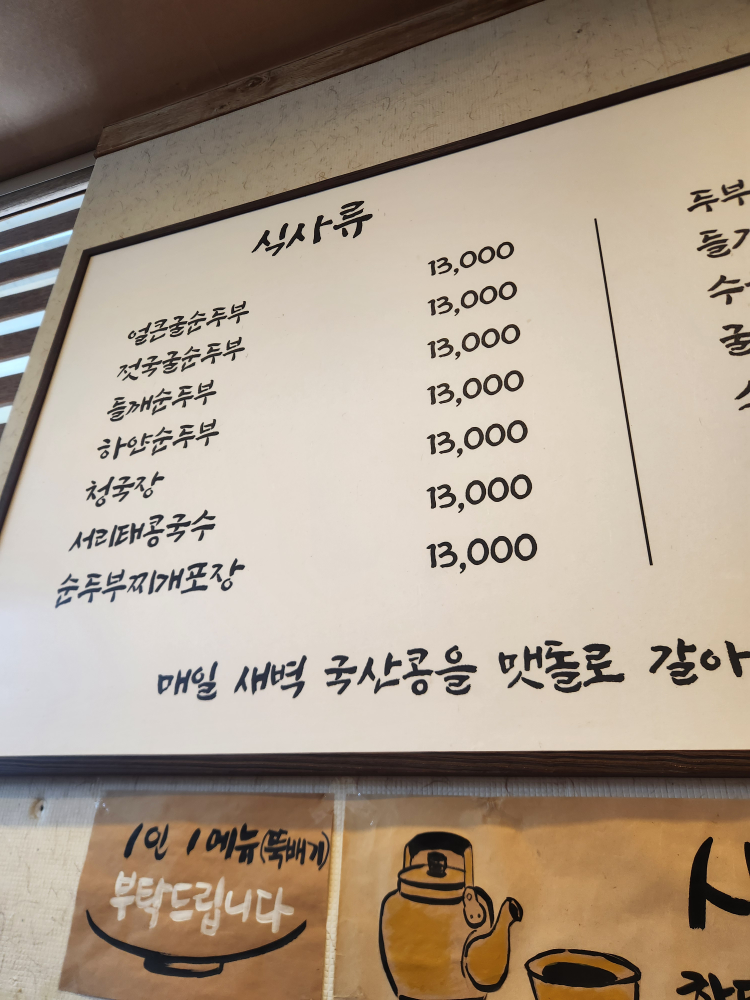 식사류
얼큰굴순두부 13,000
젓국굴순두부 13,000
들깨순두부 13,000
하얀순두부 13,000
청국장 13,000
서리태콩국수 13,000
순두부찌개포장 13,000
두부
들기
수
굴
매일 새벽 국산콩을 맷돌로 갈아
1인 1메뉴(뚝배기)
부탁드립니다